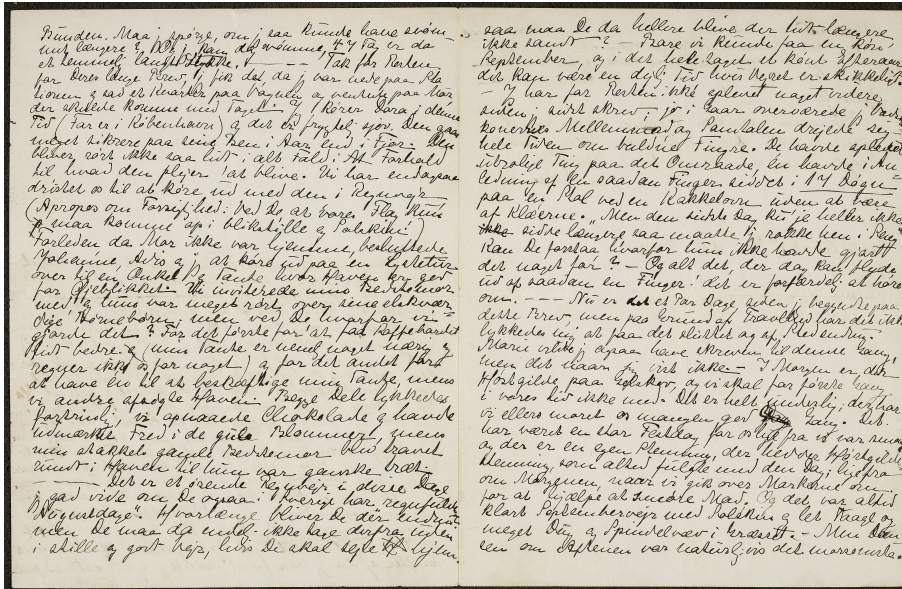 Bunden. Maa j spørge, om j saa kunde have svøm-
met længere?
et temmelig langt Stykke. — — — Tak for Resten
for Deres lange Brev! J fik det da j var nede paa Sta
tionen og sad et Kvarter paa Vognen og ventede paa Mor
der skulde komme med Toget. J kører Dora i denne
Tid (Far er i København) og det er frygtelig sjov. Den gaar
meget sikrere paa sine Ben i Aar end i Fjor. Den
bliver rørt ikke saa lidt i alt Fald i Forhold
til hvad den plejer at blive. Vi har endogsaa
dristet os til at køre ud med den i Regnvejr
(Apropos om Forsigtighed: Ved De at vores Flag kun
maa komme op i blikstille og Solskin!)
Forleden da Mor ikke var hjemme, besluttede
Johanne, Adis og j at køre ud paa en Lystetur
over til en Onkel og Tante hvor Haven
for Øjeblikket. Vi inviterede min Bedstemor
med og hun var meget rørt over sine elskvær-
dige Børnebørn, men ved De hvorfor vi
gjorde det? For det første for at faa Kaffebordet
lidt bedre (min Tante er nemlig noget nærig og
regner ikke os for noget) og for det andet for
at have en til at beskæftige min Tante, mens
vi andre Haven. Begge Dele lykkedes
fortrinlig, vi opnaaede Chokolade og havde
udmærket Fred i de gule Blommer, mens
min stakkels gamle Bedstemor blev travet
rundt i Haven til hun var ganske træt.
— — Det er et øsende Regnvejr i disse Dage
j gad vide om De ogsaa i Sverige har regnfulde
"Augustdage". Hvorlænge bliver De der endnu
men De maa da endelig ikke tage derfra uden
i stille og godt Vejr, hvis De skal sejle hjem.
saa maa De da hellere blive der lidt længere
ikke sandt? — Bare vi kunde faa en køn
September, og i det hele taget et kønt Efteraar
det kan være en dejlig Tid hvis Vejret er skikkeligt.
— J har for Resten ikke oplevet noget videre
siden, sidst skrev, jo i Gaar overværede j
Mellemmad og Samtalen drejede sig
hele Tiden om buldne Fingre. De havde oplevet
utrolige Ting paa det Omraade, en havde i An-
ledning af en saadan Finger siddet i 17 Døgn
paa en Stol ved en Kakkelovn uden at være
af Klæderne. "Men den sidste Dag ku' je heller ikke
sidde længere saa maatte j rokke hen i Seng"
Kan De forstaa hvorfor hun ikke havde gjort
det noget før? — Og alt det, der dog kan flyde
ud af saadan en Finger! det er forfærdeligt at høre
om. — — — Nu er det et Par Dage siden j begyndte paa
dette Brev, men paa Grund af Travlhed har det ikke
lykkedes mig at faa det sluttet og nu
Marie j ogsaa have skrevet til denne Gang,
men det naar j vist ikke — I Morgen er der
Høstgilde paa Gelskov, og vi skal for første Gang
i vores Tid ikke med. Det er helt underligt; der har
vi ellers moret os mangen god Gang. Det
har været en stor Festdag for os lige fra vi var smaa
og der er en egen Stemning, der hedder Høstgilde-
Stemning, som altid fulgte med den Dag; lige fra
om Morgenen, naar vi gik over Markerne om
for at hjælpe at smøre Mad. Og det var altid
klart Septembervejr med Solskin og let Taage og
meget Dug og Spindelvæv i Græsset. — Men Dan-
sen om Aftenen var naturligvis det morsomste.